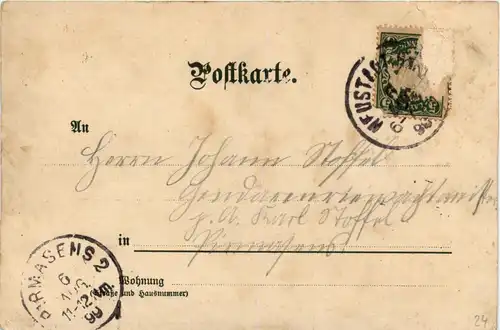 Postkarte.
NEUSTADT
99
An
Herrn Johann Stoffel
Gendarmeriewachtmeister
p. A. Karl Stoffel
in Pirmasens
Wohnung
(Straße und Hausnummer)
PIRMASENS 2
6
AUG
11-12
99
24